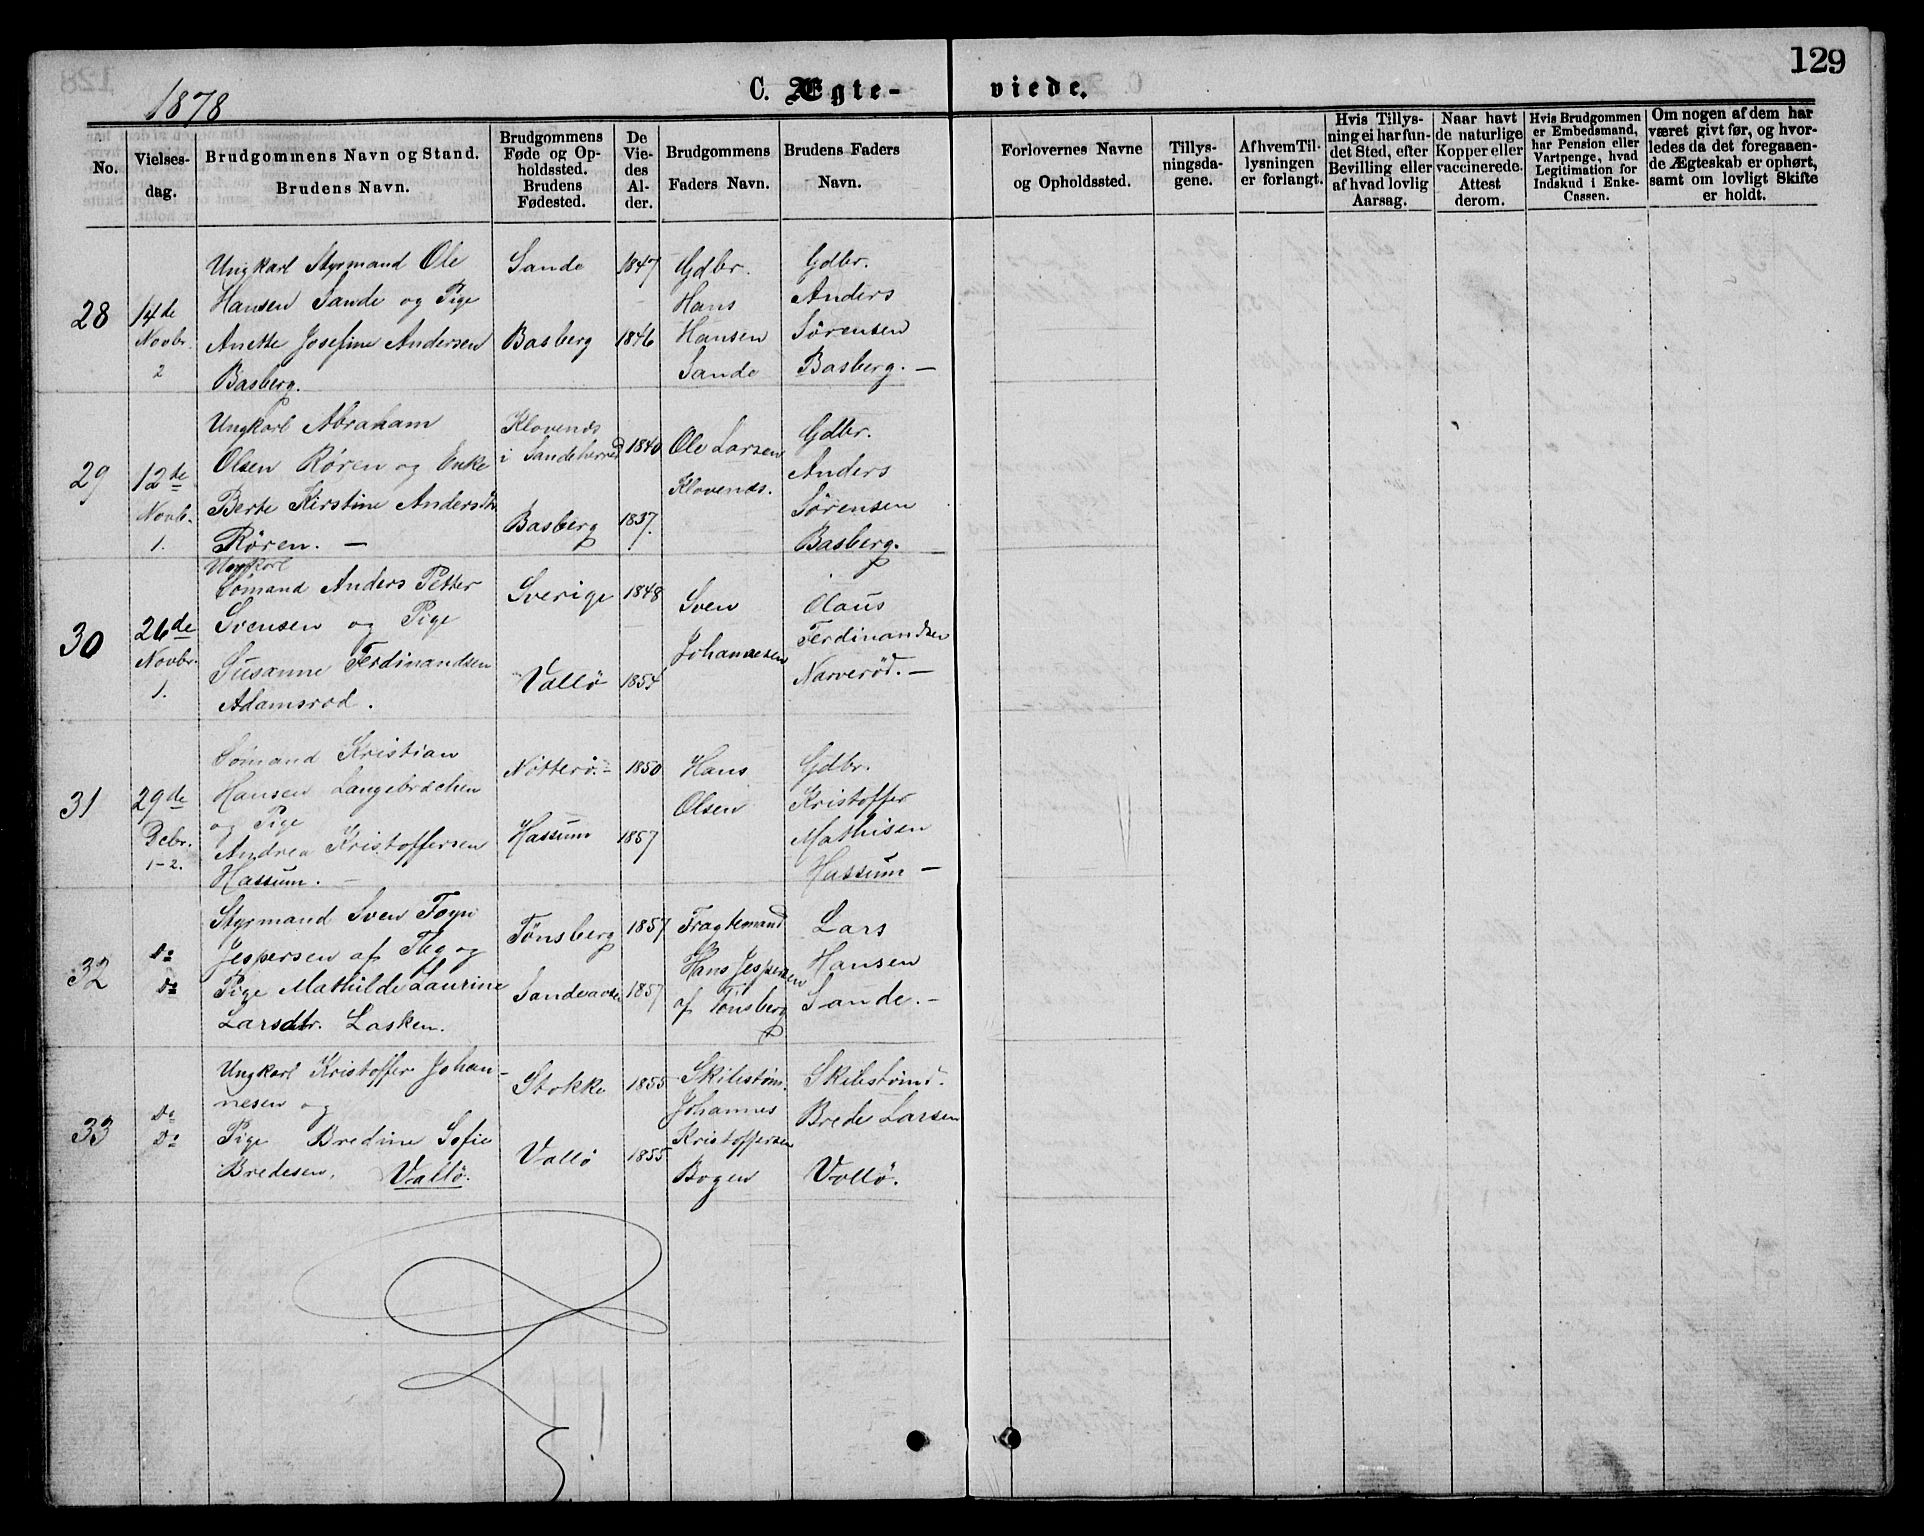 129
1878
C. Ægte- viede.
No.
Vielses-
dag.
Brudgommens Navn og Stand.
Brudens Navn.
Brudgommens
Føde og Op-
holdssted.
Brudens
Fødested.
De
Vie-
des
Al-
der.
Brudgommens
Faders Navn.
Brudens Faders
Navn.
Forlovernes Navne
og Opholdssted.
Tillys-
ningsda-
gene.
Af hvem Til-
lysningen
er forlangt.
Hvis Tillys-
ning ei har fun-
det Sted, efter
Bevilling eller
af hvad lovlig
Aarsag.
Naar havt
de naturlige
Kopper eller
vaccinerede.
Attest
derom.
Hvis Brudgommen
er Embedsmand,
har Pension eller
Vartpenge, hvad
Legitimation for
Indskud i Enke-
Cassen.
Om nogen af dem har
været givt før, og hvor-
ledes da det foregaaen-
de Ægteskab er ophørt,
samt om lovligt Skifte
er holdt.
28
14de
Novbr.
2
Ungkarl Styrmand Ole
Hansen Sande og Pige
Anette Josefine Andersen
Basberg.
Sande
Basberg
1847
1846
Gdbr.
Hans
Hansen
Sande
Gdbr.
Anders
Sørensen
Basberg. —
29
12de
Novb.
1.
Ungkarl Abraham
Olsen Røren og Enke
Berte Kirstine Andersdtr
Røren. —
Klovends
i Sandeherred
Basberg
1840
1837.
Ole Larsen
Klovends.
Gdbr.
Anders
Sørensen
Basberg. —
30
26de
Novbr.
1.
Ungkarl
Sømand Anders Petter
Svensen og Pige
Susanne Ferdinandsen
Adamsrød.
Sverige
Vallø
1848
1854
Sven
Johannesen
Olaus
Ferdinandsen
Narverød. —
31
29de
Debr.
1-2.
Sømand Kristian
Hansen Langebrækken
og Pige
Andrea Kristoffersen
Hassum. —
Nøtterø. —
Hassum
1850
1857
Hans
Olsen
Gdbr.
Kristoffer
Mathisen
Hassum —
32
Do
Do
Styrmand Sven Foyn
Jespersen af Tbg og
Pige Mathilde Laurine
Larsdtr. Lasken.
Tønsberg
1857
1857
Fragtemand
Hans Jespersen
af Tønsberg
Lars
Hansen
Sande. —
33
Do
Do
Ungkarl Kristoffer Johan-
nesen og
Pige Bredine Sofie
Bredesen. Vallø.
Stokke
Vallø
1855
1855
Skibstøm.
Johannes
Kristoffersen
Bogen
Skibstømd.
Brede Larsen
Vallø.